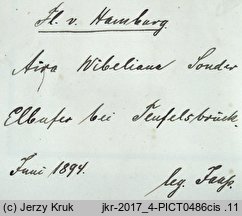 Fl. v. Hamburg.
Aira Wibeliana Sonder
Elbufer bei Teufelsbrück.
Juni 1894.
leg. Jaap.
(c) Jerzy Kruk jkr-2017_4-PICT0486cis .11